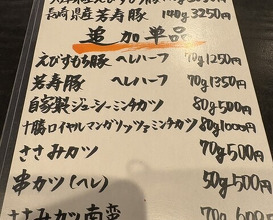 長崎県産若寿豚 140g 3250円
追加単品
えびすもち豚 ヘレハーフ 70g 1250円
若寿豚 ヘレハーフ 70g 1350円
自家製ジューシーミンチカツ 80g 500円
十勝ロイヤルマンガリッツァミンチカツ 80g 1000円
ささみカツ 70g 500円
串カツ(ヘレ) 50g 500円
ささみカツ南蛮 70g 600円